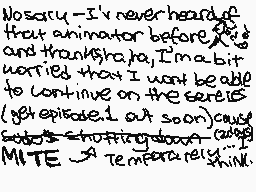 No sorry - I'v never heard of
that animator before,
and thanks ha ha, I'm a bit
worried that I wont be able
to continue on the sereies
(get episode.1 out soon) cause
sudo's shutting down (2 days)
MITE → Temporarely... I
think.